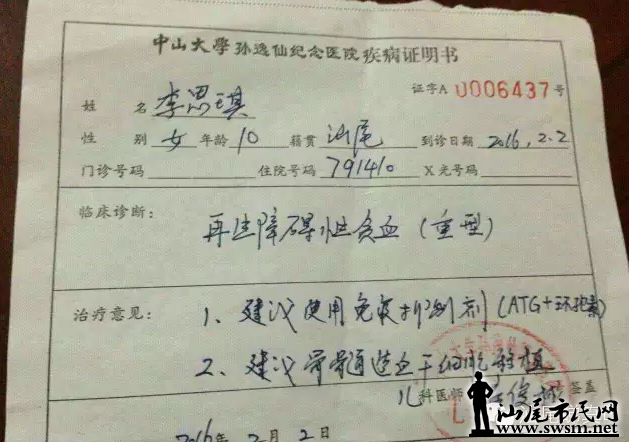 中山大學孙逸仙纪念医院疾病证明书
证字A 0006437号
姓 名 李思琪
性 别 女 年龄 10 籍贯 汕尾 到诊日期 2016.2.2
门诊号码 住院号码 791410 X光号码
临床诊断: 再生障碍性贫血(重型)
治疗意见: 1、建议使用免疫抑制剂(ATG+环孢素)
2、建议骨髓造血干细胞移植
儿科医师 签盖
2016年 2月 2日
汕尾市民网
www.swsm.net